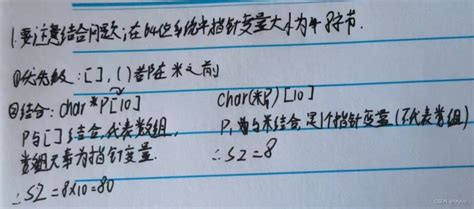 1.要注意结合问题,在64位系统中指针变量大小为8字节.
①优先级:[],()都在*之前
②结合:char*P[10]
P与[]结合,代表数组,
数组元素为指针变量.
∴SZ=8×10=80
char(*P)[10]
P,首先与*结合,是1个指针变量(不代表数组)
∴SZ=8